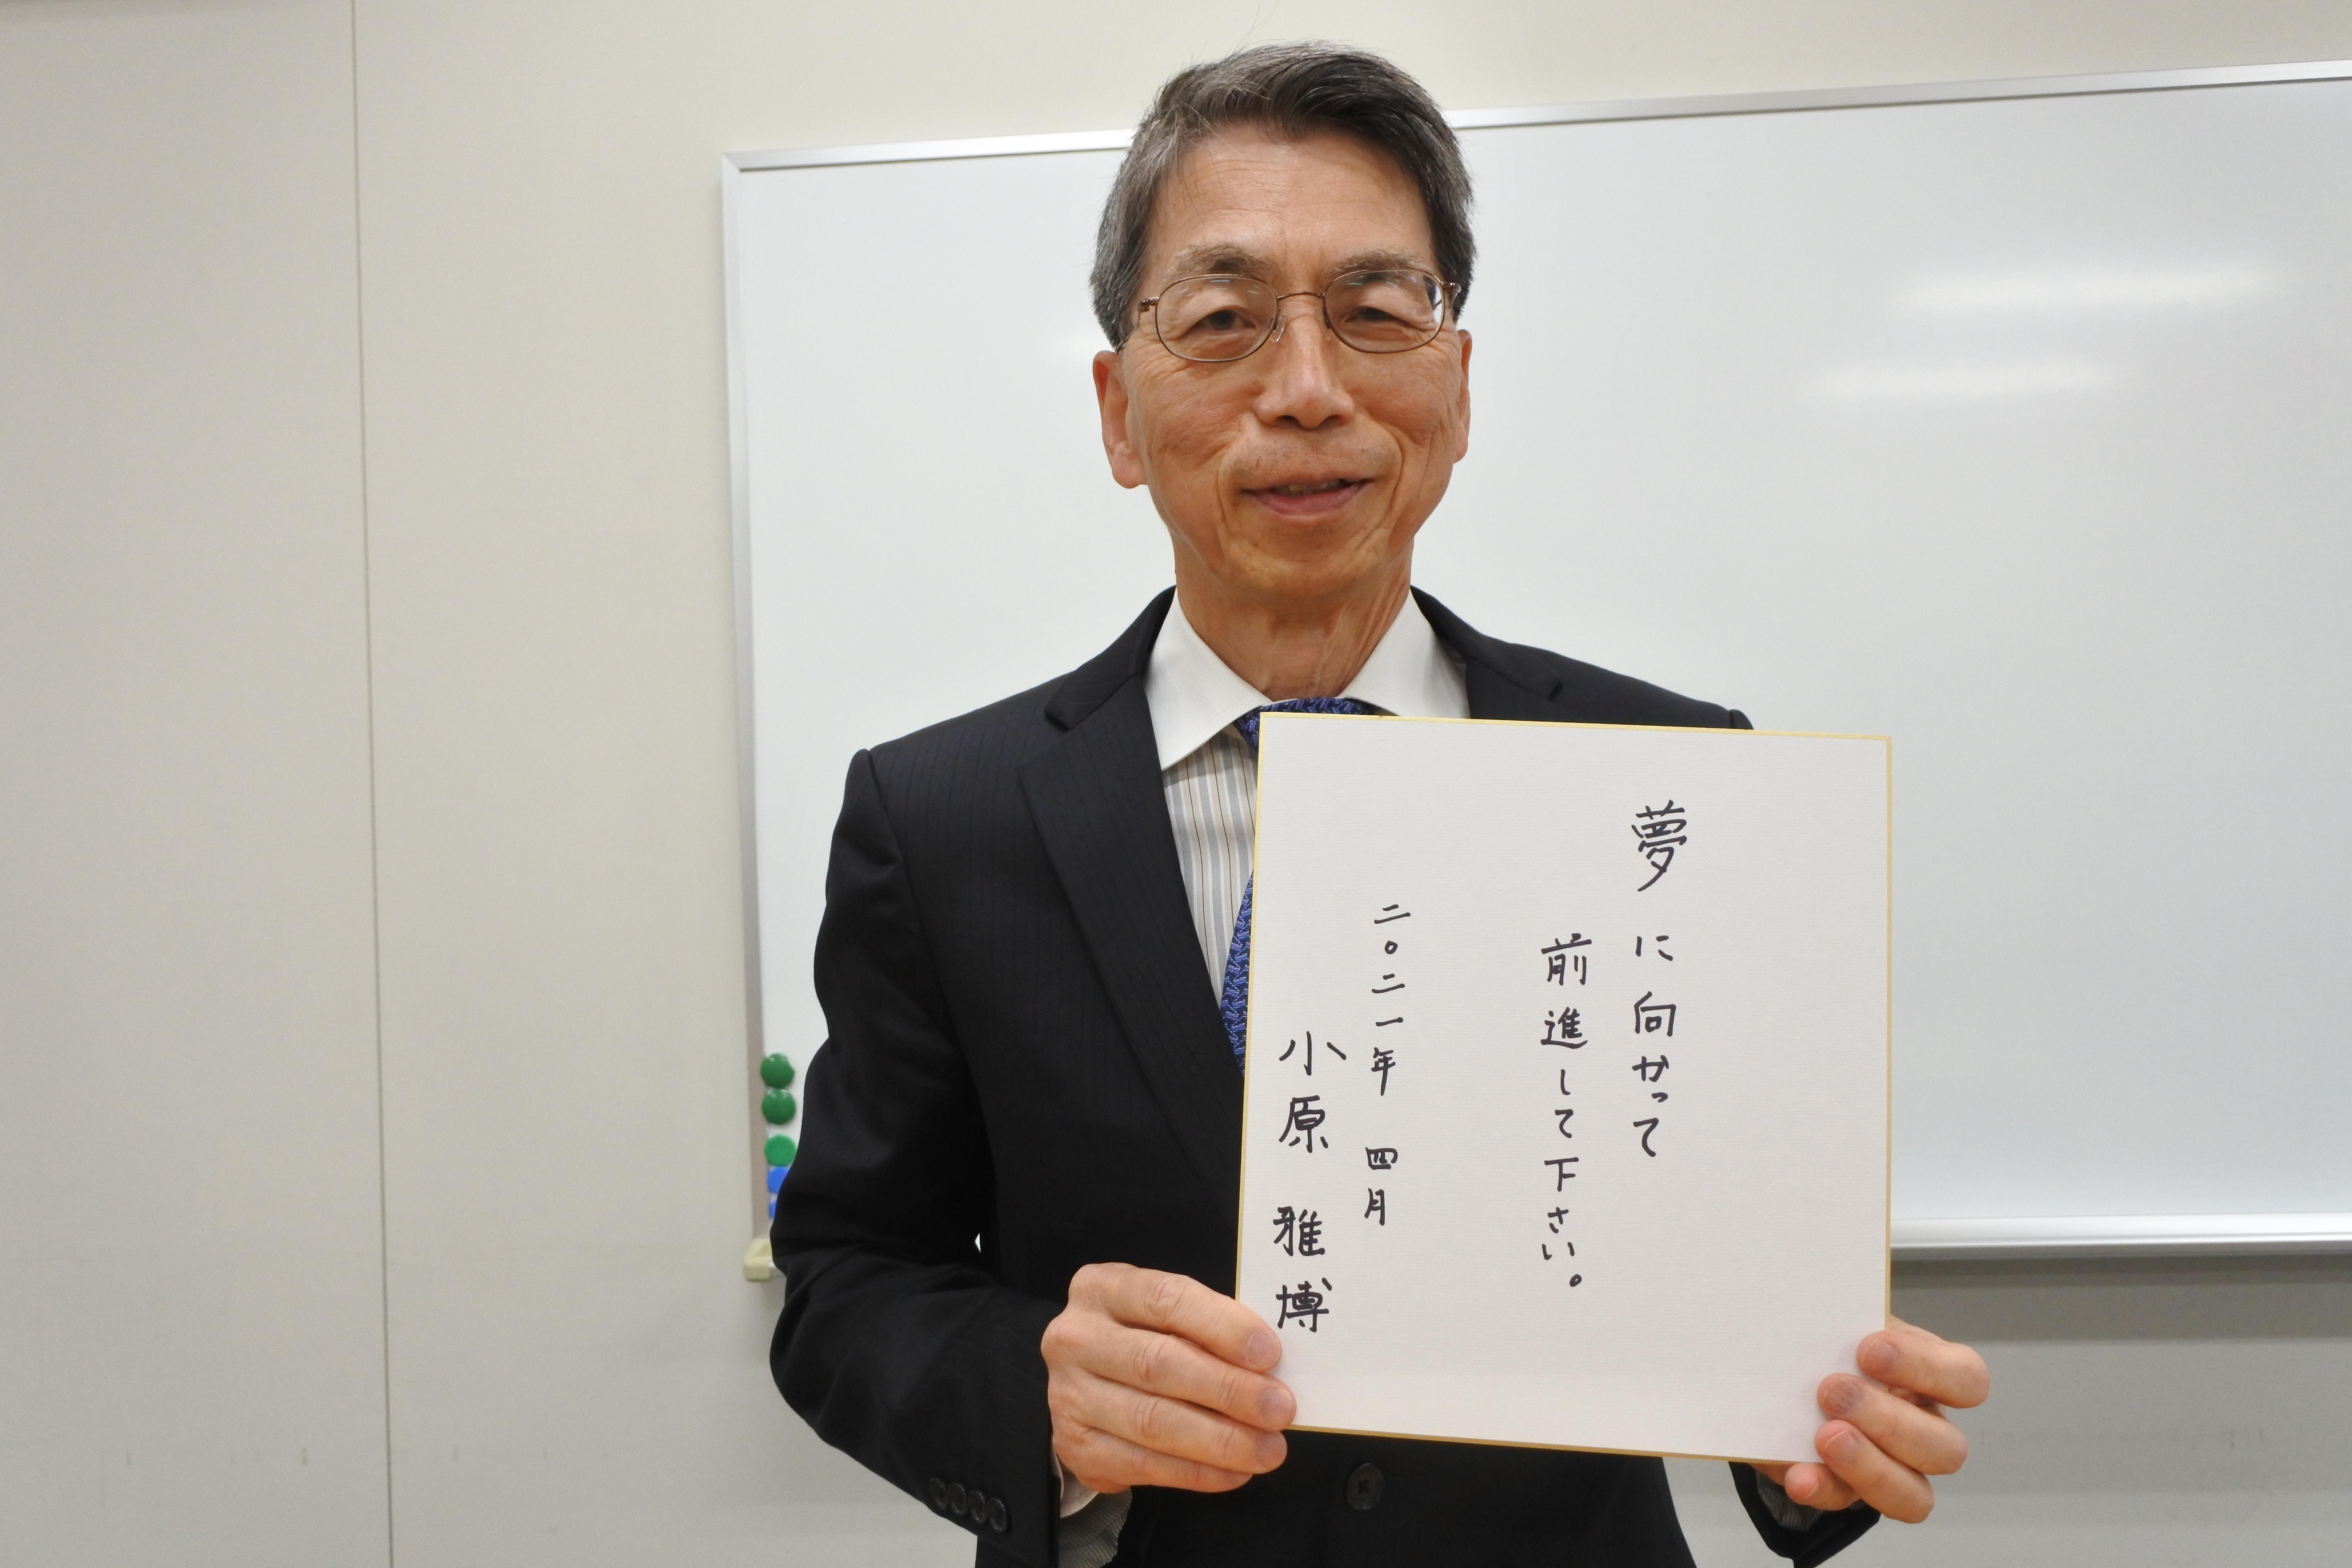 夢に向かって
前進して下さい。
二〇二一年 四月
小原 雅博